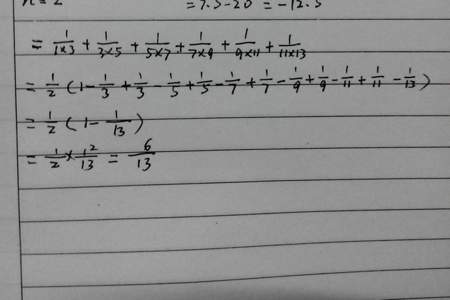 n = 2 = 7.5-20 = -12.5
= 1/1×3 + 1/3×5 + 1/5×7 + 1/7×9 + 1/9×11 + 1/11×13
= 1/2 (1 - 1/3 + 1/3 - 1/5 + 1/5 - 1/7 + 1/7 - 1/9 + 1/9 - 1/11 + 1/11 - 1/13)
= 1/2 (1 - 1/13)
= 1/2 × 12/13 = 6/13